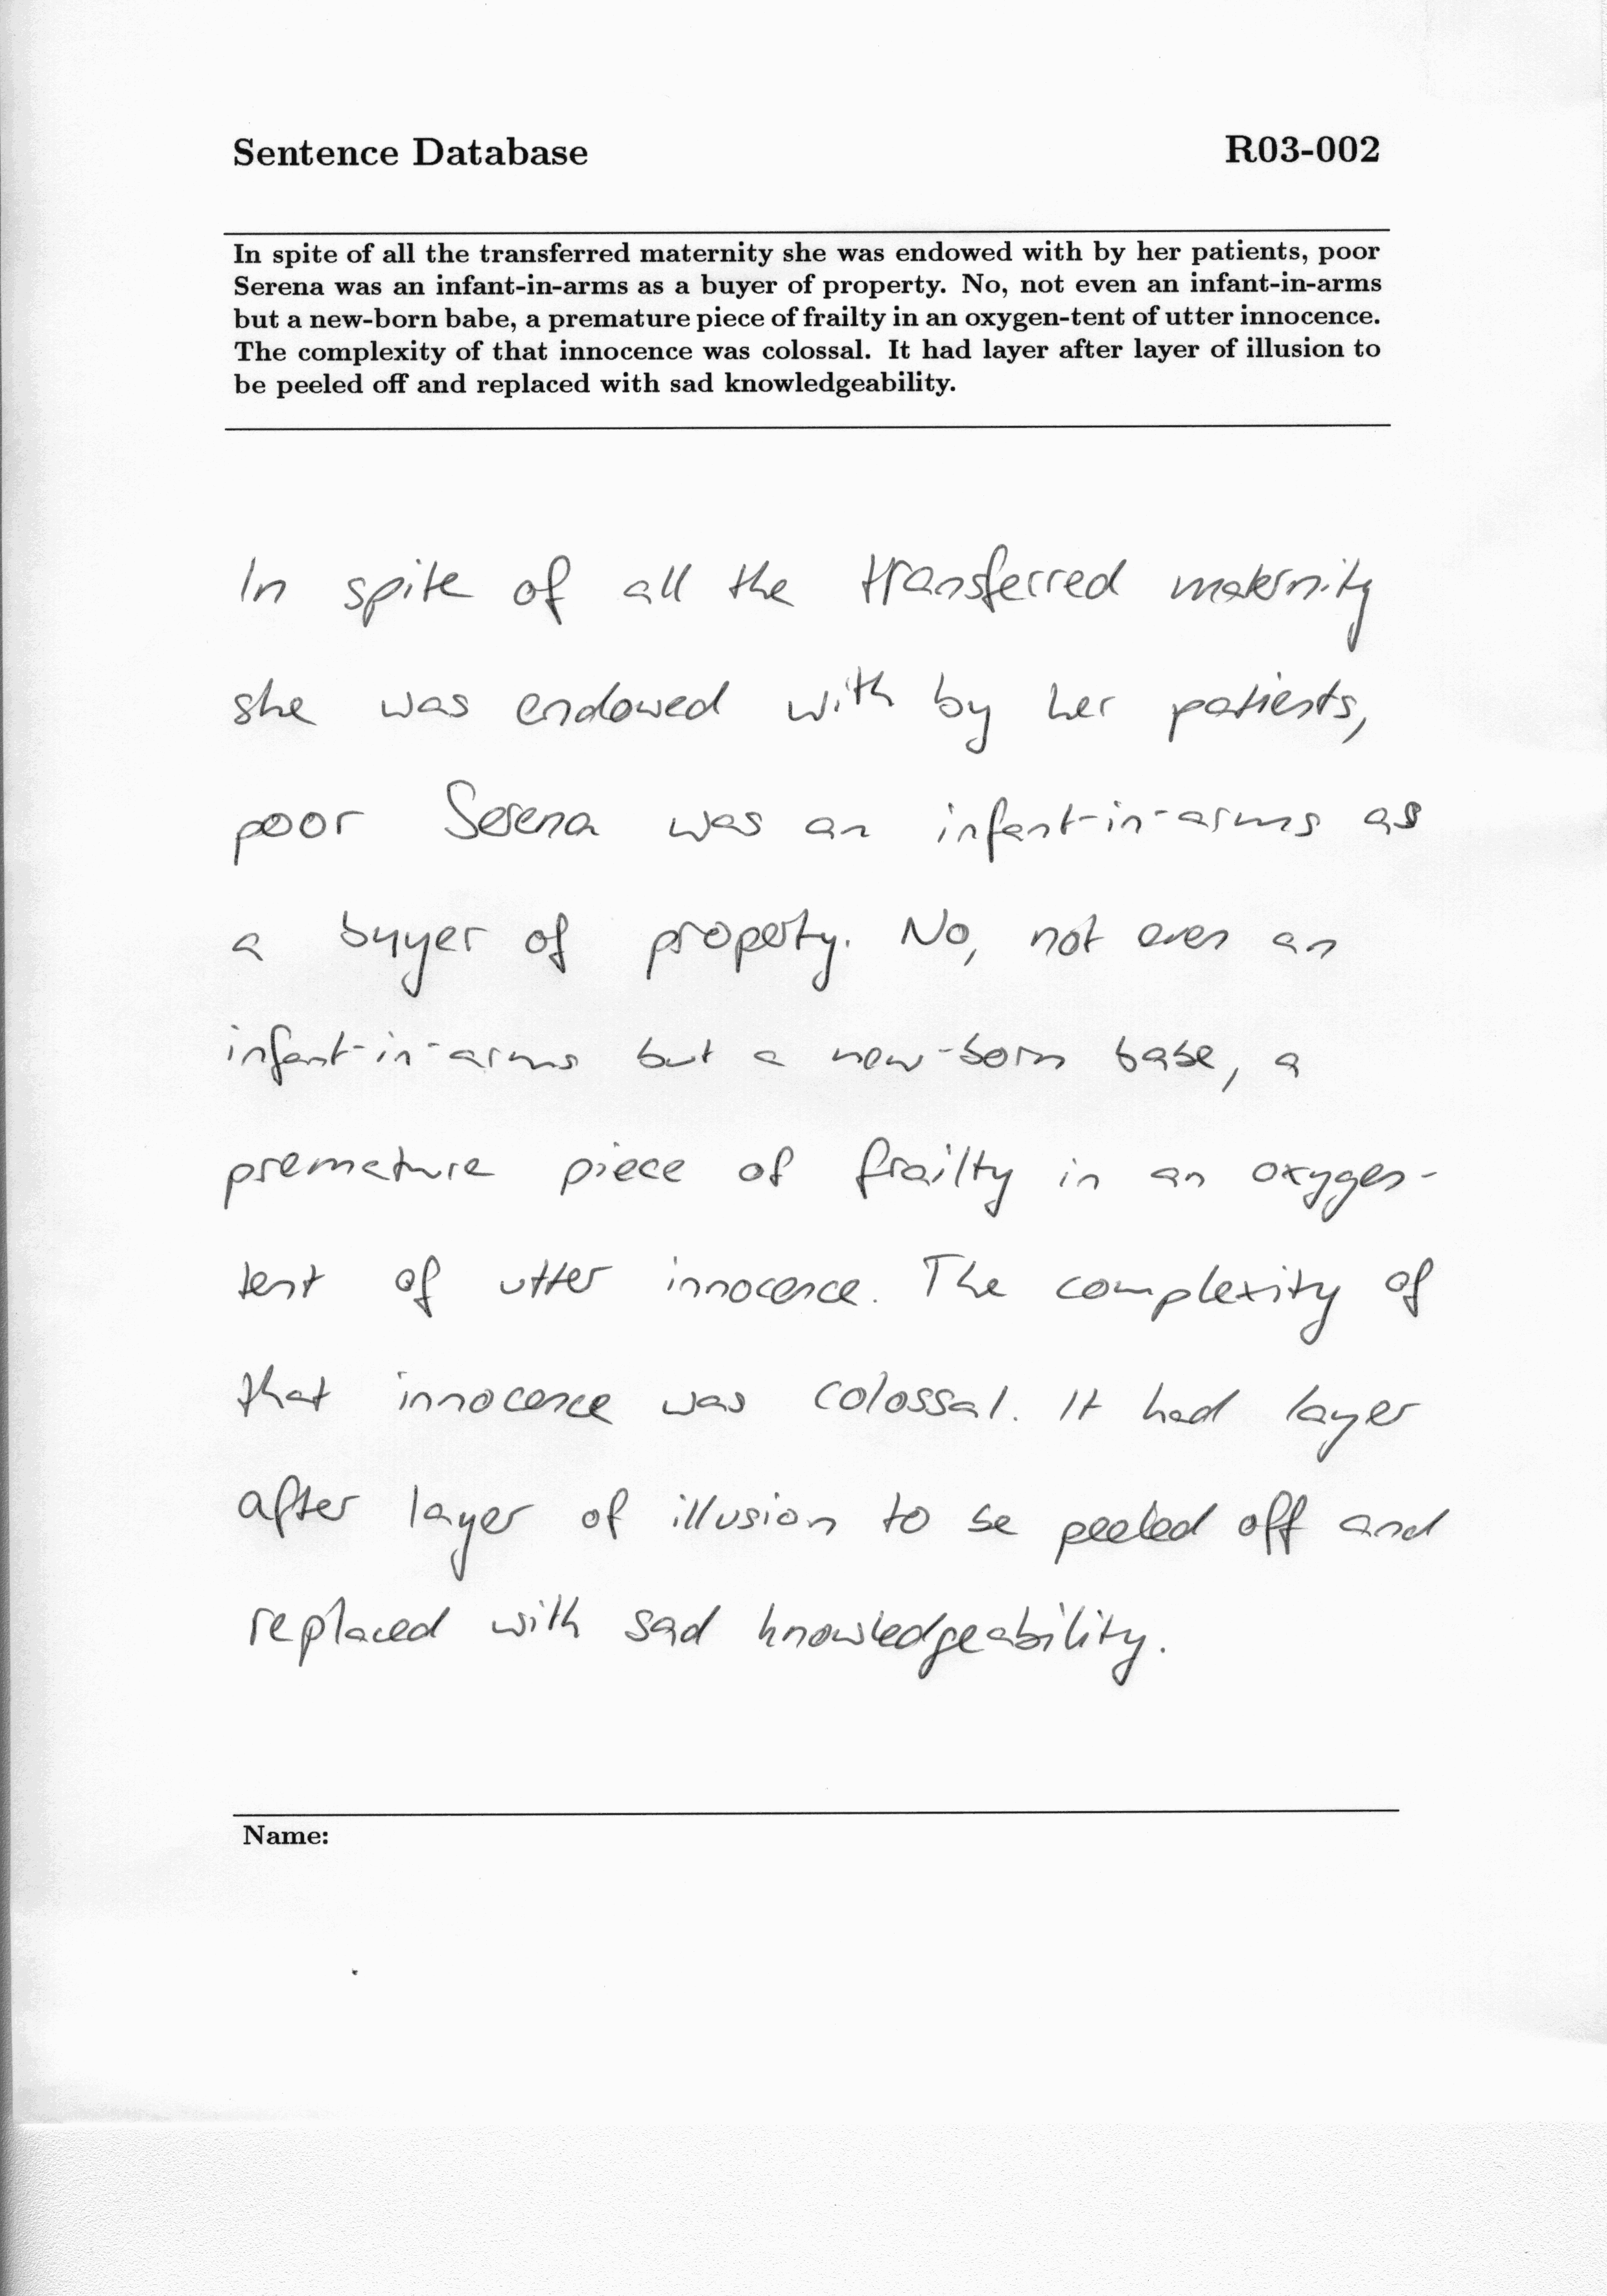 Sentence Database R03-002
In spite of all the transferred maternity she was endowed with by her patients, poor
Serena was an infant-in-arms as a buyer of property. No, not even an infant-in-arms
but a new-born babe, a premature piece of frailty in an oxygen-tent of utter innocence.
The complexity of that innocence was colossal. It had layer after layer of illusion to
be peeled off and replaced with sad knowledgeability.
In spite of all the transferred maternity
she was endowed with by her patients,
poor Serena was an infant-in-arms as
a buyer of property. No, not even an
infant-in-arms but a new-born babe, a
premature piece of frailty in an oxygen-
tent of utter innocence. The complexity of
that innocence was colossal. It had layer
after layer of illusion to be peeled off and
replaced with sad knowledgeability.
Name: